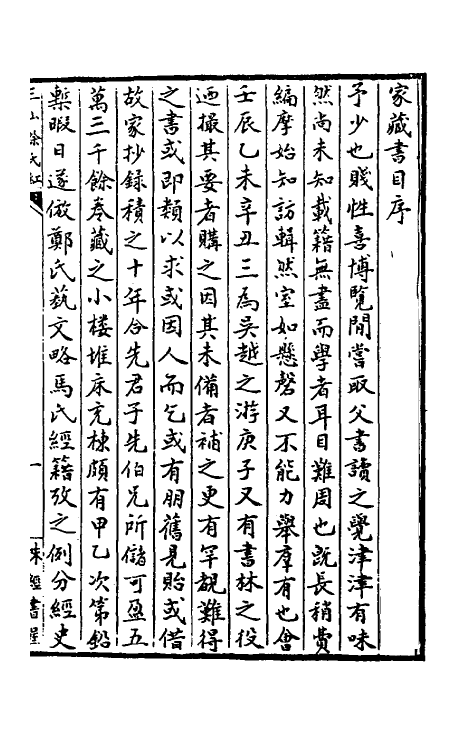 家藏書目序
予少也賤性喜博覽閒嘗取父書讀之覺津津有味
然尚未知載籍無盡而學者耳目難周也既長稍費
編摩始知訪輯然室如懸磬又不能力舉群有也會
壬辰乙未辛丑三為吳越之游庚子又有書林之役
迺撮其要者購之因其未備者補之更有罕覯難得
之書或即類以求或因人而乞或有朋舊見貽或借
故家抄錄積之十年合先君子先伯兄所儲可盈五
萬三千餘卷藏之小樓堆床充棟頗有甲乙次第鉛
槧暇日遂倣鄭氏藝文略馬氏經籍攷之例分經史
三山徐氏紅 一 味經書屋